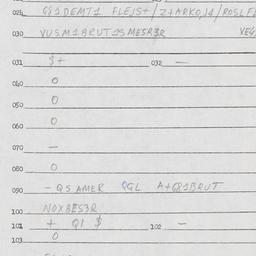 024 G81DEMT1 FLEJST/Z+ARKOJ4/ROSLF
030 VUSM1BRUT2SMESR3R VEG
031 $+ 032 —
040 0
050 0
060 0
070 —
080 0
090 - QS AMER QGL A+Q81BRUT
100 NOXBES3R
101 + Q1 $ 102 —
103 0